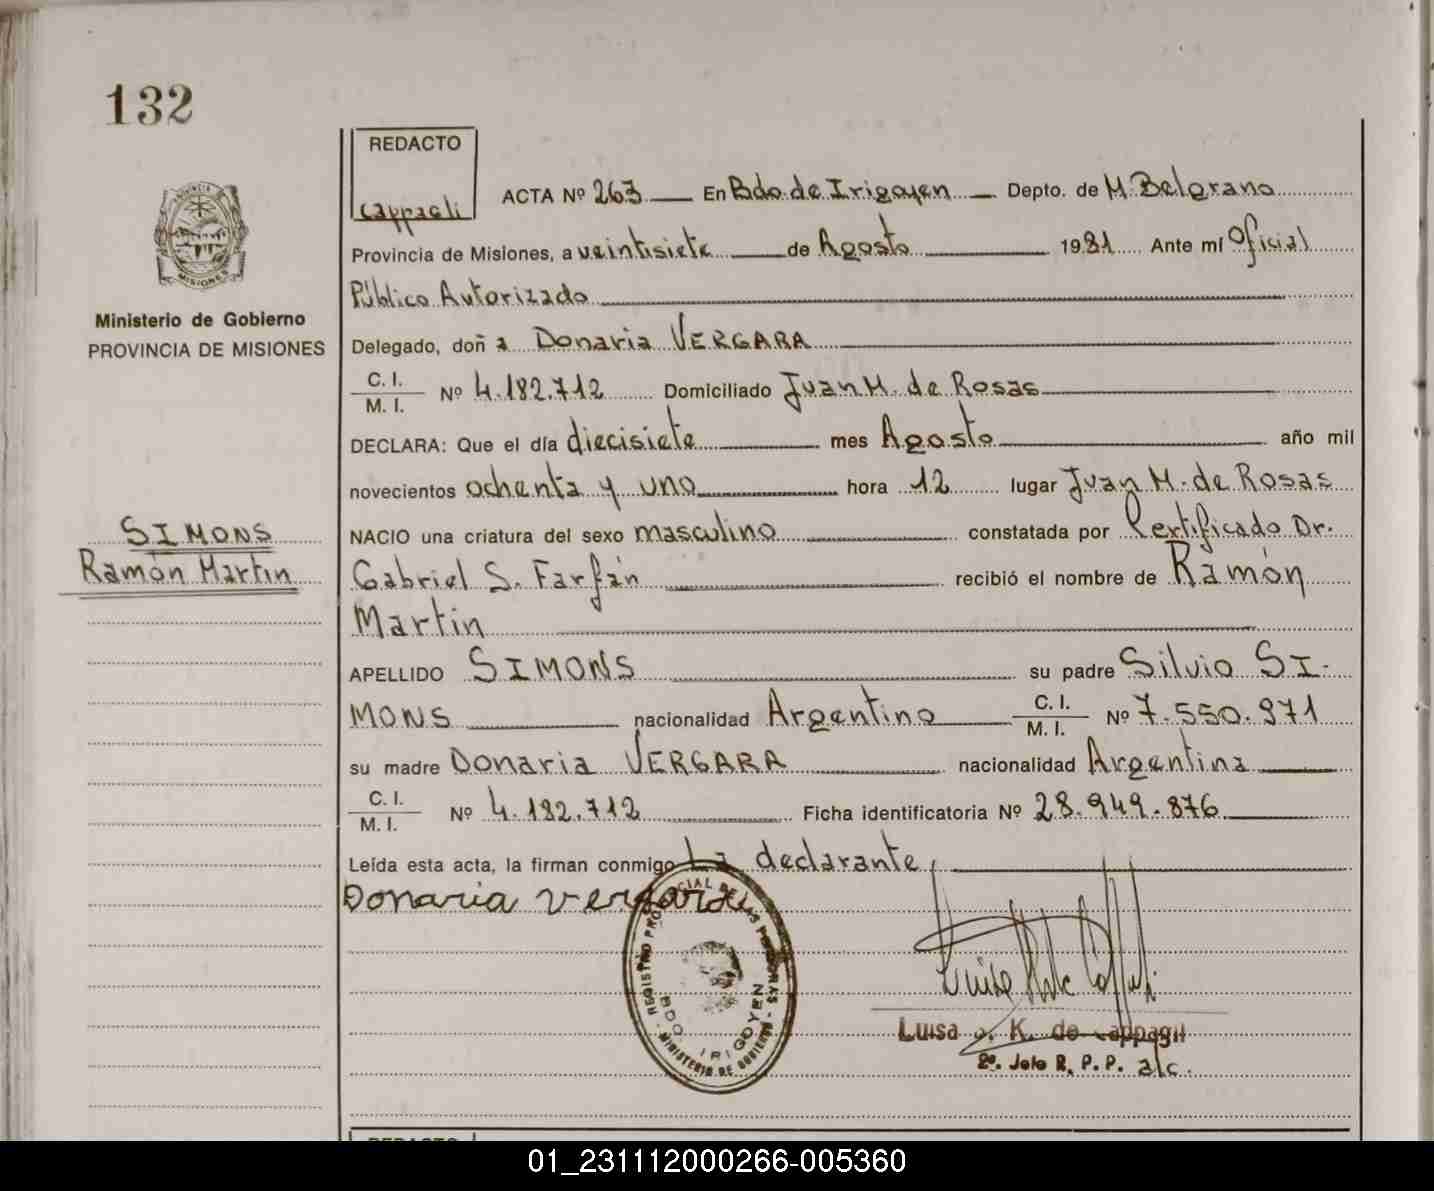 132
REDACTO
Cappagli
ACTA Nº 263 En Bdo. de Irigoyen Depto. de M. Belgrano
Provincia de Misiones, a veintisiete de Agosto 1981 Ante mí Oficial
Público Autorizado
MISIONES
Ministerio de Gobierno
PROVINCIA DE MISIONES
Delegado, doña Donaria VERGARA
C. I.
M. I. Nº 4.182.712 Domiciliado Juan M. de Rosas
DECLARA: Que el día diecisiete mes Agosto año mil
novecientos ochenta y uno hora 12 lugar Juan M. de Rosas
SIMONS
Ramón Martin
NACIO una criatura del sexo masculino constatada por Certificado Dr.
Gabriel S. Farfán recibió el nombre de Ramón
Martin
APELLIDO SIMONS su padre Silvio SI-
MONS nacionalidad Argentino C. I. M. I. Nº 7.550.971
su madre Donaria VERGARA nacionalidad Argentina
C. I.
M. I. Nº 4.182.712 Ficha identificatoria Nº 28.949.876
Leída esta acta, la firman conmigo La declarante
Donaria vergara
REGISTRO PROVINCIAL DE LAS PERSONAS - MINISTERIO DE GOBIERNO -
BDO. IRIGOYEN
Luisa K. de Cappagli
2º. Jefe R. P. P. a/c.
REDACTO
01_231112000266-005360